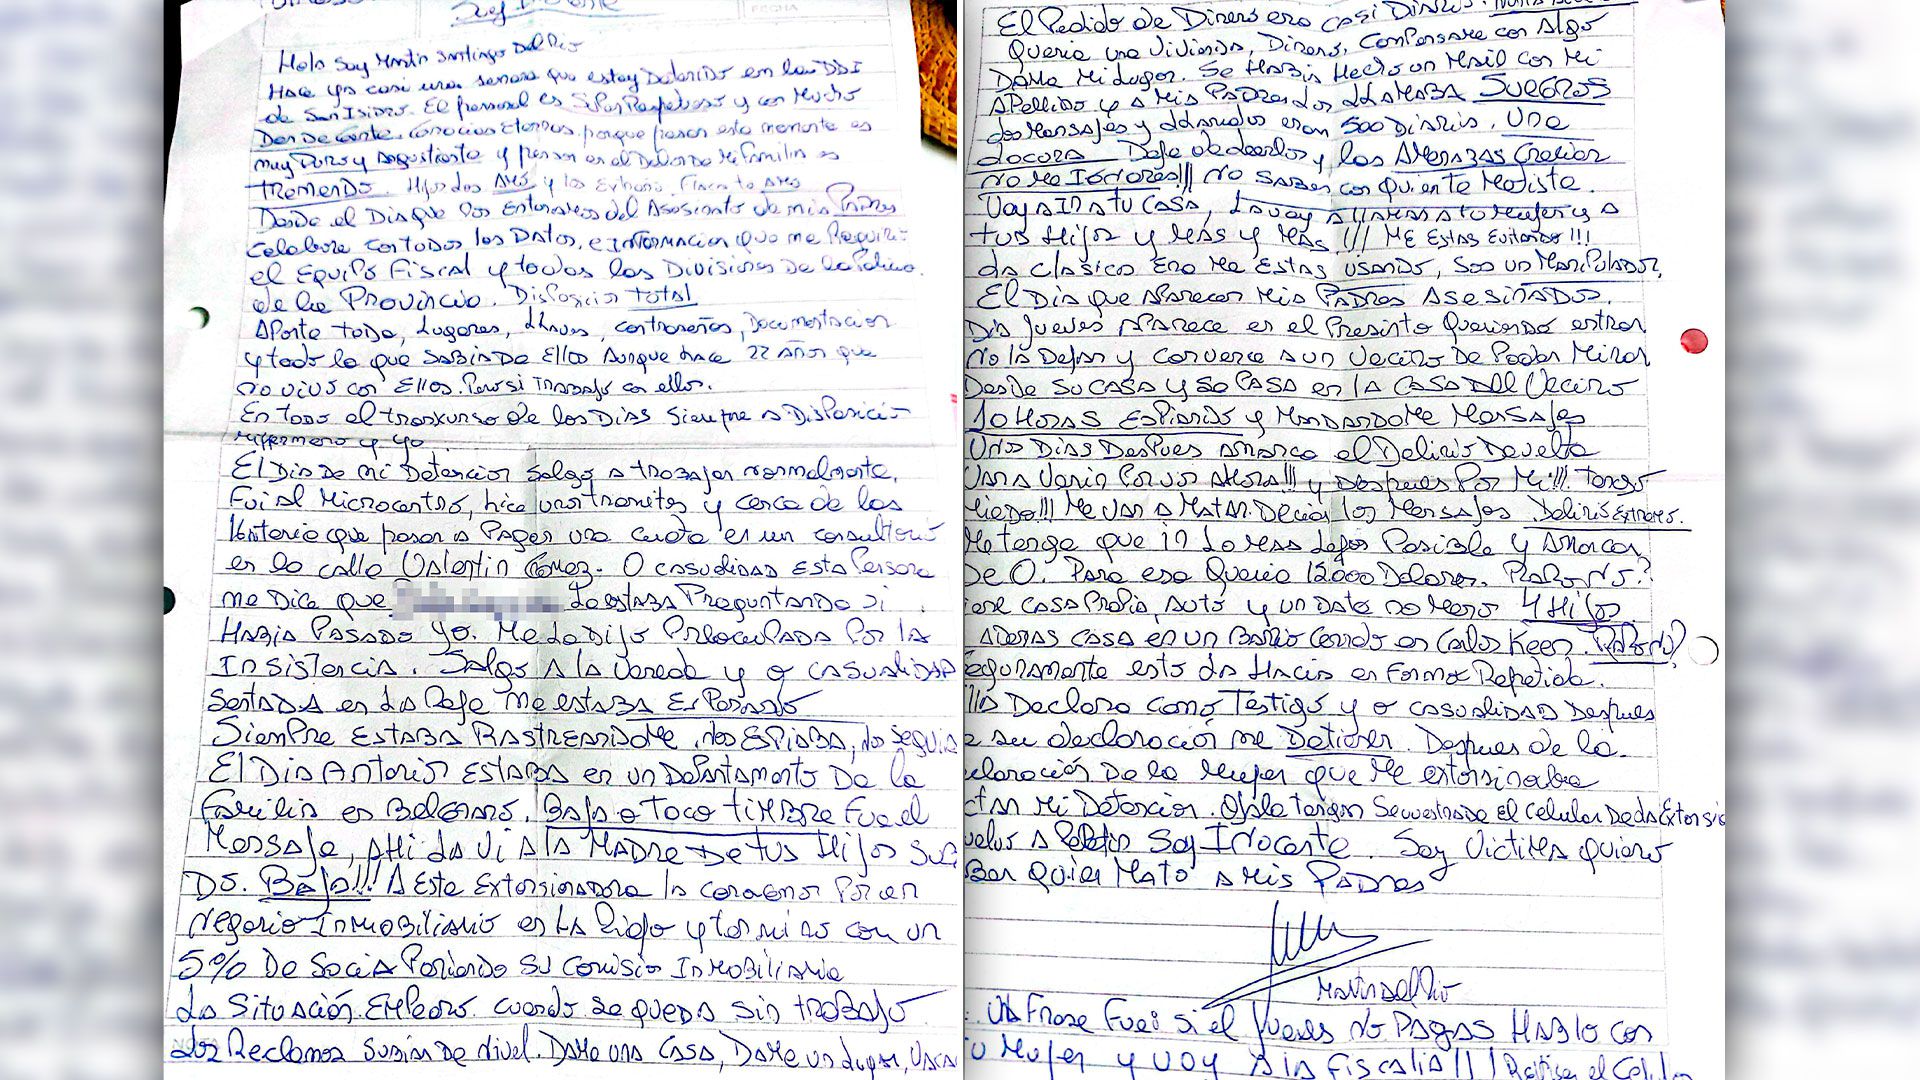 Soy Inocente
FECHA
Hola Soy Martin Santiago Del Rio
Hace ya casi una semana que estoy Detenido en la DDI
de San Isidro. El personal es Super Respetuoso y con mucho
Don de Gente. Gracias Eternas, porque pasar este momento es
muy Duro y Angustiante y pensar en el Dolor de Mi familia es
tremendo. Hijos los AMO y los Extraño.
Desde el Dia que los Enteramos del Asesinato de mis Padres
Colabore con todos los Datos, e Informacion que me Requirio
el Equipo Fiscal y todas las Divisiones De la Policia
de la Provincia. Disposicion TOTAL
Aporte todo, Lugares, Llaves, contraseñas, Documentacion
y todo lo que sabia de Ellos aunque hace 22 años que
no vivo con Ellos. Pero si trabajo con ellos.
En todo el transkurso de los Dias siempre a Disposicion
mi hermano y yo.
El Dia de mi Detencion Salgo a trabajar normalmente.
Fui al Microcentro, hice unos tramites y cerca de las
14 tenia que pasar a Pagar una cuota en un consultorio
en la calle Valentin Gomez. O casualidad esta Persona
me Dice que La estaba Preguntando si
Habia Pasado yo. Me lo dijo Preocupada por la
Insistencia. Salgo a la vereda y o casualidad
Sentada en la Cafe me estaba Esperando
Siempre estaba Rastreandome, nos ESPIABA, los seguia
El Dia Anterior ESTABA en un Departamento De la
Familia en Belgrano. Baja o toco TIMBRE Fue el
Mensaje, Ahi la vi a la Madre De tus Hijos
Do. Baja!!! A esta Extorsionadora la conocemos por un
Negocio Inmobiliario en La Rioja y termino con un
5% De Socia Poniendo su Comision Inmobiliaria
La Situación Empeoro cuando se queda sin trabajo
Los Reclamos Subian de Nivel. Dame una CASA, Dame un Lugar,
El Pedido de Dinero era casi Diario.
Queria una Vivienda, Dinero, Compensame con Algo
Dame mi lugar. Se Habia Hecho un Mail con mi
Apellido y a mis Padres los LLAMABA SUEGROS
Los Mensajes y Llamados eran 500 Diarios. Una
Locura. Deje de leerlos y las AMENAZAS Crecian
No me Ignores!!! No sabes con quien te Metiste.
Voy a Ir a tu Casa, La voy a llamar a tu Mujer y a
tus Hijos y Mas y Mas!!! Me Estas Evitando!!!
La Clasica Era Me Estas USANDO, Sos un Manipulador.
El Dia que aparecen Mis PADRES Asesinados.
Dia Jueves aparece en el Presinto Queriendo entrar
No la Dejan y convence a un Vecino De Poder Mirar
Desde su Casa y se Pasa en la Casa del Vecino
10 Horas Espiando y Mandandome Mensajes
Unos Dias Despues Arranca el Delirio De vuelta
Van a Venir Por vos Ahora!!! y Despues Por Mi!!! Tengo
Miedo!!! Me van a Matar. Decian los Mensajes. Delirio Extremo.
Me tengo que ir Lo mas Lejos Posible y Arrancar
De 0. Para eso Queria 12.000 Dolares. Raro No?
Casa Propia, Auto y un Dato no Menor 4 Hijos
Ademas Casa en un Barrio Cerrado en Carlos Keen. Raro No?
eguramente esto lo Hacia en Forma Repetida.
Ella Declara como Testigo y o casualidad Despues
de su declaración me Detienen. Despues de la
claración De la Mujer que Me extorsionaba
Mi Detencion. Ojala tengan Secuestrado el Celular De la Extorsio
uelvo a Repetir Soy Inocente. Soy Victima quiero
Saber Quien Mato a Mis PADRES
Martin del Rio
Frase Fue Si el Jueves no Pagas Hablo con
tu Mujer y Voy a la Fiscalia!!!